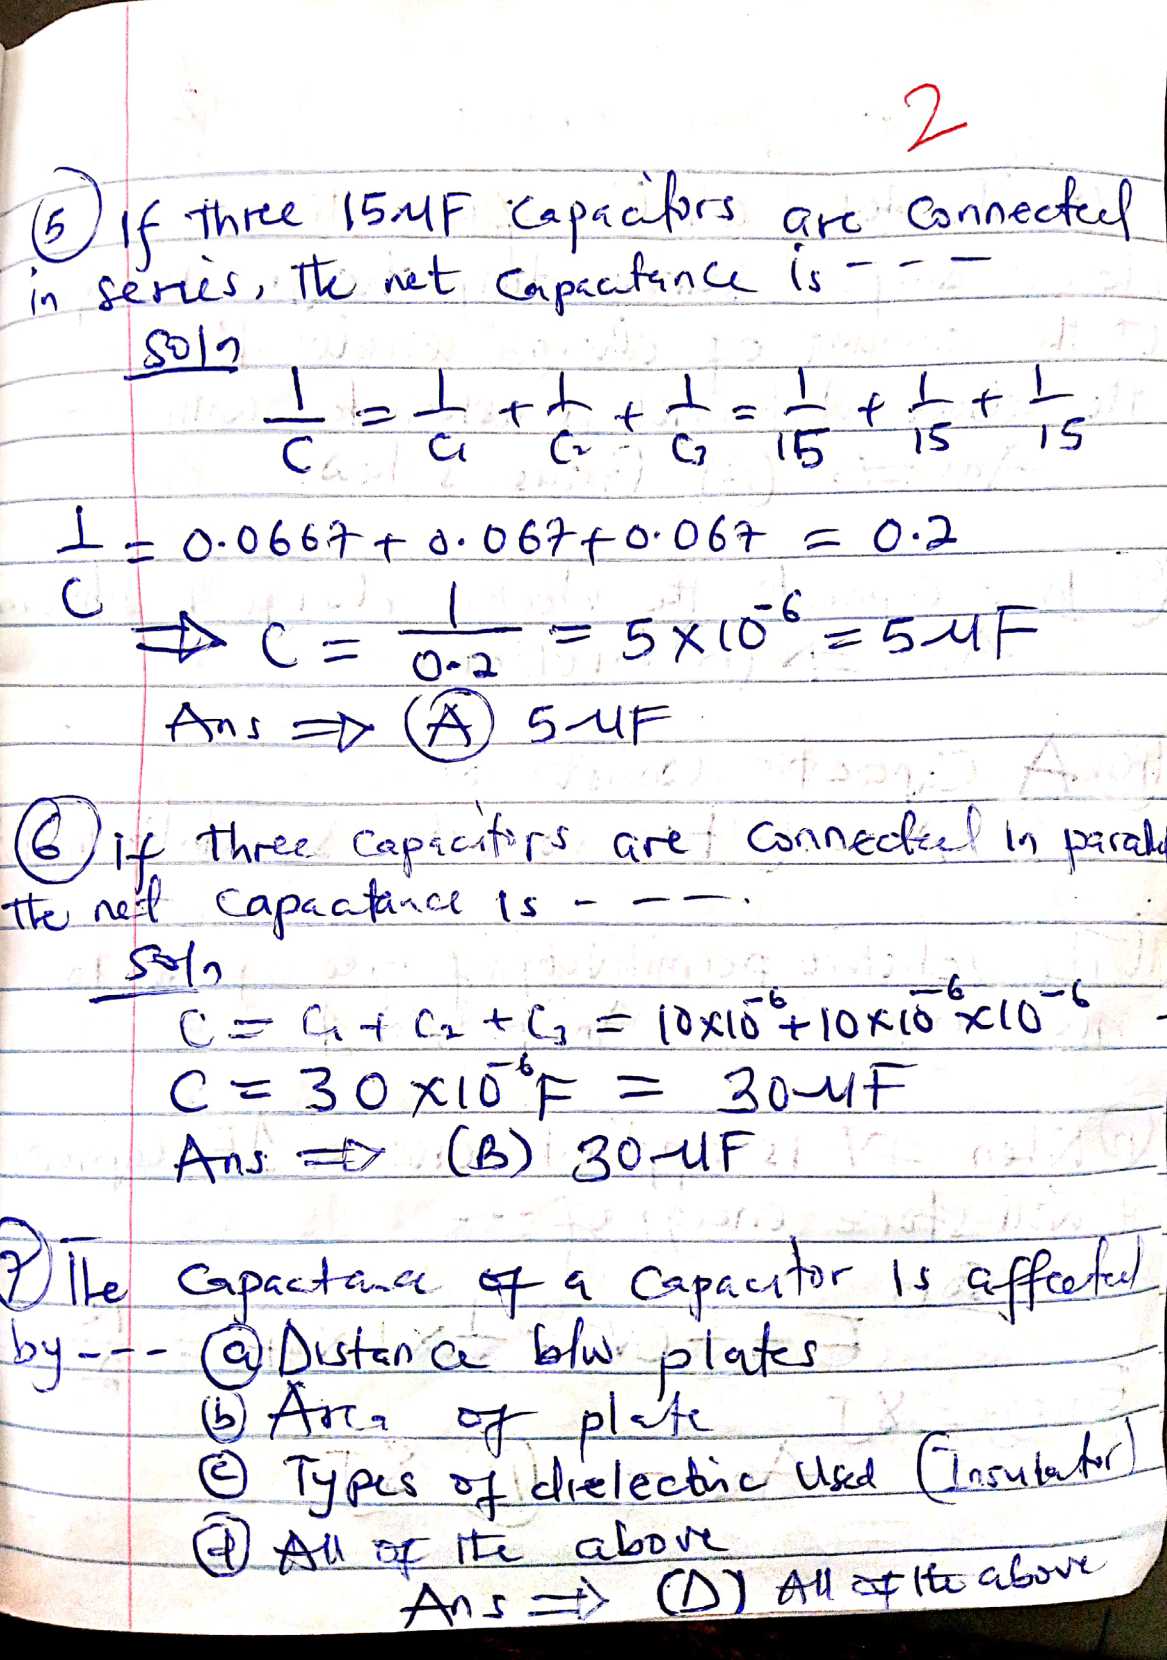 2
⑤ If three 15μF capacitors are connected
in series, the net capacitance is ---
Soln
1/C = 1/C1 + 1/C2 + 1/C3 = 1/15 + 1/15 + 1/15
1/C = 0.0667 + 0.067 + 0.067 = 0.2
⇒ C = 1/0.2 = 5×10⁻⁶ = 5μF
Ans ⇒ Ⓐ 5μF
⑥ if three capacitors are connected in paralle
the net capacitance is ----.
Soln
C = C1 + C2 + C3 = 10×10⁻⁶ + 10×10⁻⁶ ×10⁻⁶
C = 30×10⁻⁶F = 30μF
Ans ⇒ (B) 30μF
⑦ The capactance of a capacitor is affected
by --- ⓐ Distance b/w plates
ⓑ Area of plate
ⓒ Types of dielectric used (Insulator)
ⓓ All of the above
Ans ⇒ (D) All of the above